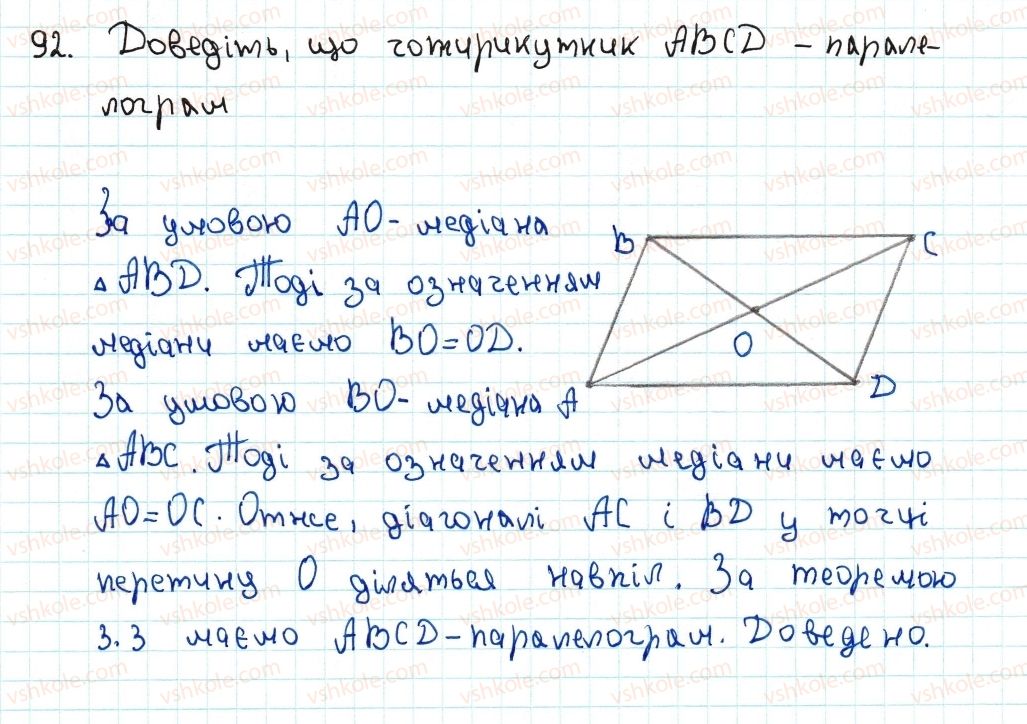 92. Доведіть, що чотирикутник ABCD - парале-
лограм
За умовою AO- медіана
△ABD. Тоді за означенням
медіани маємо BO=OD.
За умовою BO- медіана
△ABC. Тоді за означенням медіани маємо
AO=OC. Отже, діагоналі AC і BD у точці
перетину O діляться навпіл. За теоремою
3.3 маємо ABCD-паралелограм. Доведено.
B
C
O
A
D
vshkole.com